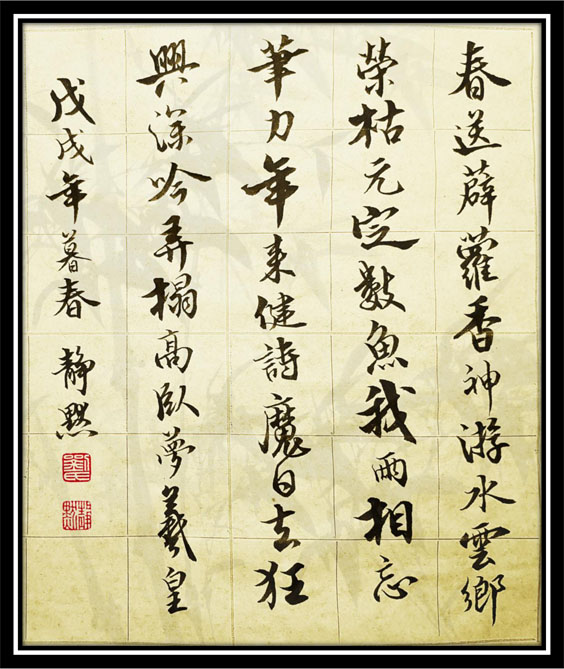 春送薜蘿香神游水雲鄉
榮枯元定數魚我兩相忘
筆力年來健詩魔日去狂
興深吟弄榻高臥夢羲皇
戊戌年暮春 靜默
靜默